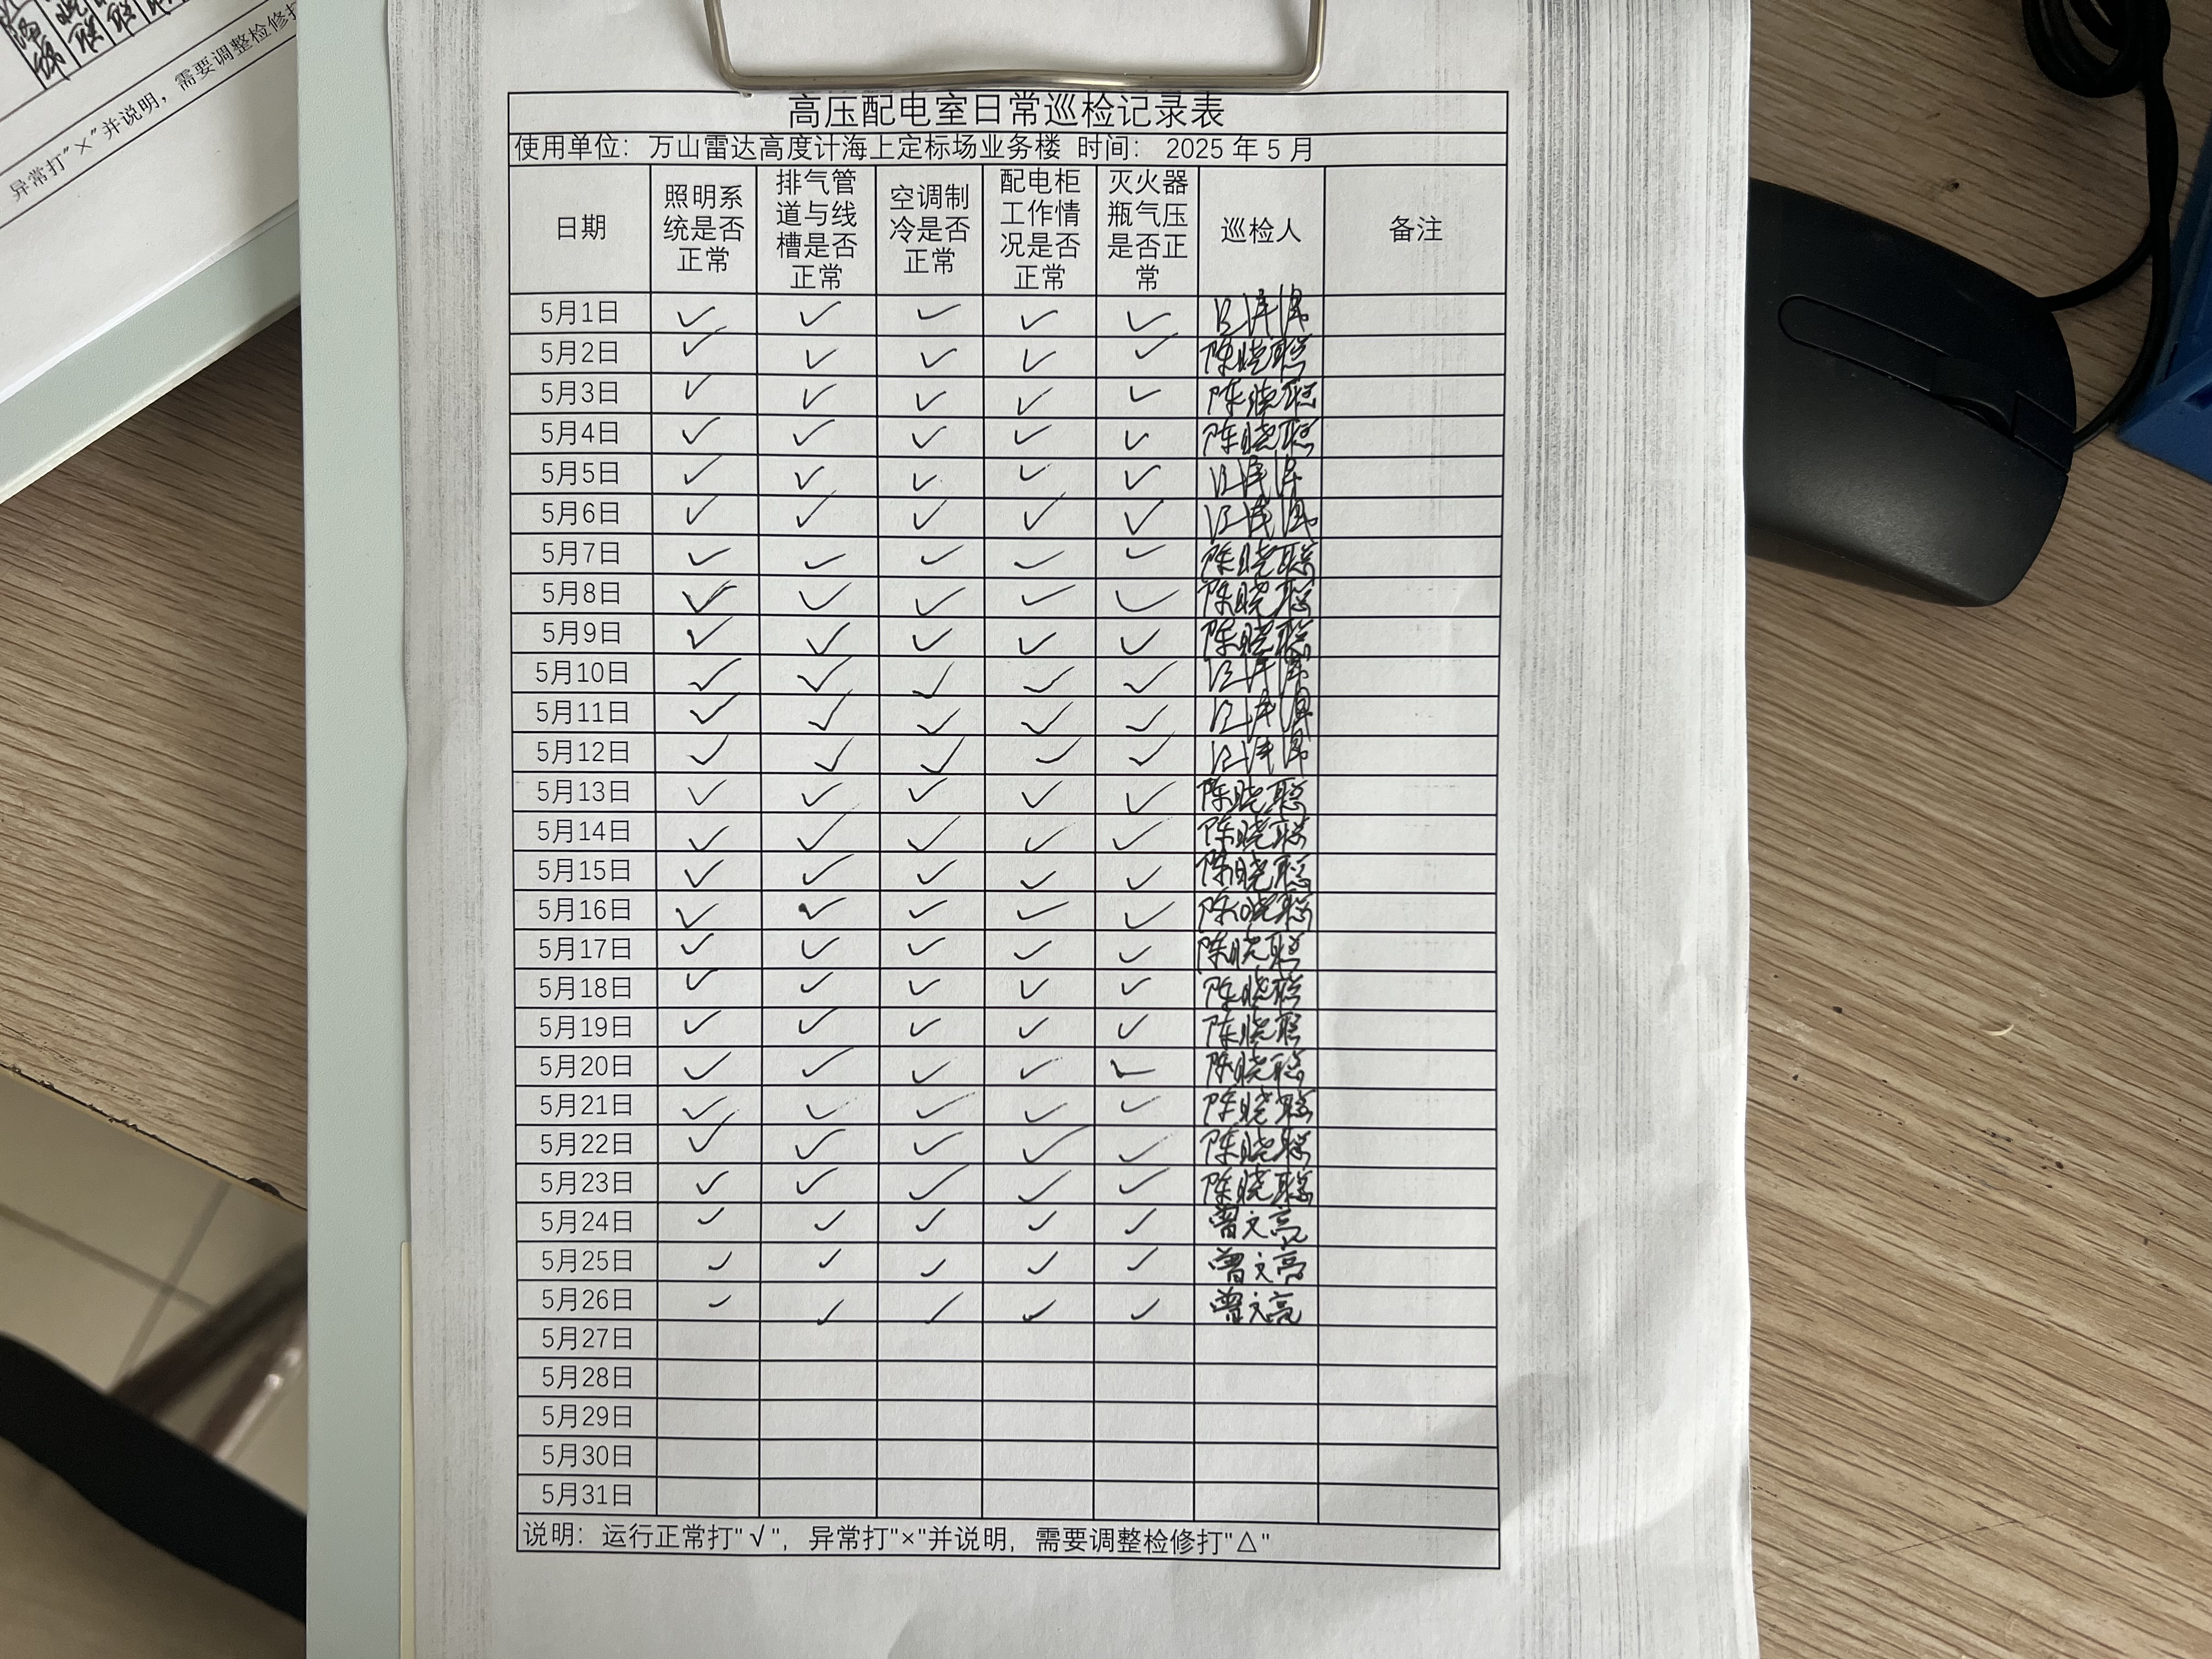 异常打"×"并说明，需要调整检修打
高压配电室日常巡检记录表
使用单位：万山雷达高度计海上定标场业务楼 时间： 2025 年 5 月
日期 照明系统是否正常 排气管道与线槽是否正常 空调制冷是否正常 配电柜工作情况是否正常 灭火器瓶气压是否正常 巡检人 备注
5月1日 ✓ ✓ ✓ ✓ ✓
5月2日 ✓ ✓ ✓ ✓ ✓ 陈晓聪
5月3日 ✓ ✓ ✓ ✓ ✓ 陈晓聪
5月4日 ✓ ✓ ✓ ✓ ✓ 陈晓聪
5月5日 ✓ ✓ ✓ ✓ ✓
5月6日 ✓ ✓ ✓ ✓ ✓
5月7日 ✓ ✓ ✓ ✓ ✓ 陈晓聪
5月8日 ✓ ✓ ✓ ✓ ✓ 陈晓聪
5月9日 ✓ ✓ ✓ ✓ ✓ 陈晓聪
5月10日 ✓ ✓ ✓ ✓ ✓
5月11日 ✓ ✓ ✓ ✓ ✓
5月12日 ✓ ✓ ✓ ✓ ✓
5月13日 ✓ ✓ ✓ ✓ ✓ 陈晓聪
5月14日 ✓ ✓ ✓ ✓ ✓ 陈晓聪
5月15日 ✓ ✓ ✓ ✓ ✓ 陈晓聪
5月16日 ✓ ✓ ✓ ✓ ✓ 陈晓聪
5月17日 ✓ ✓ ✓ ✓ ✓ 陈晓聪
5月18日 ✓ ✓ ✓ ✓ ✓ 陈晓聪
5月19日 ✓ ✓ ✓ ✓ ✓ 陈晓聪
5月20日 ✓ ✓ ✓ ✓ ✓ 陈晓聪
5月21日 ✓ ✓ ✓ ✓ ✓ 陈晓聪
5月22日 ✓ ✓ ✓ ✓ ✓ 陈晓聪
5月23日 ✓ ✓ ✓ ✓ ✓ 陈晓聪
5月24日 ✓ ✓ ✓ ✓ ✓ 曾文亮
5月25日 ✓ ✓ ✓ ✓ ✓ 曾文亮
5月26日 ✓ ✓ ✓ ✓ ✓ 曾文亮
5月27日
5月28日
5月29日
5月30日
5月31日
说明：运行正常打"√"，异常打"×"并说明，需要调整检修打"△"